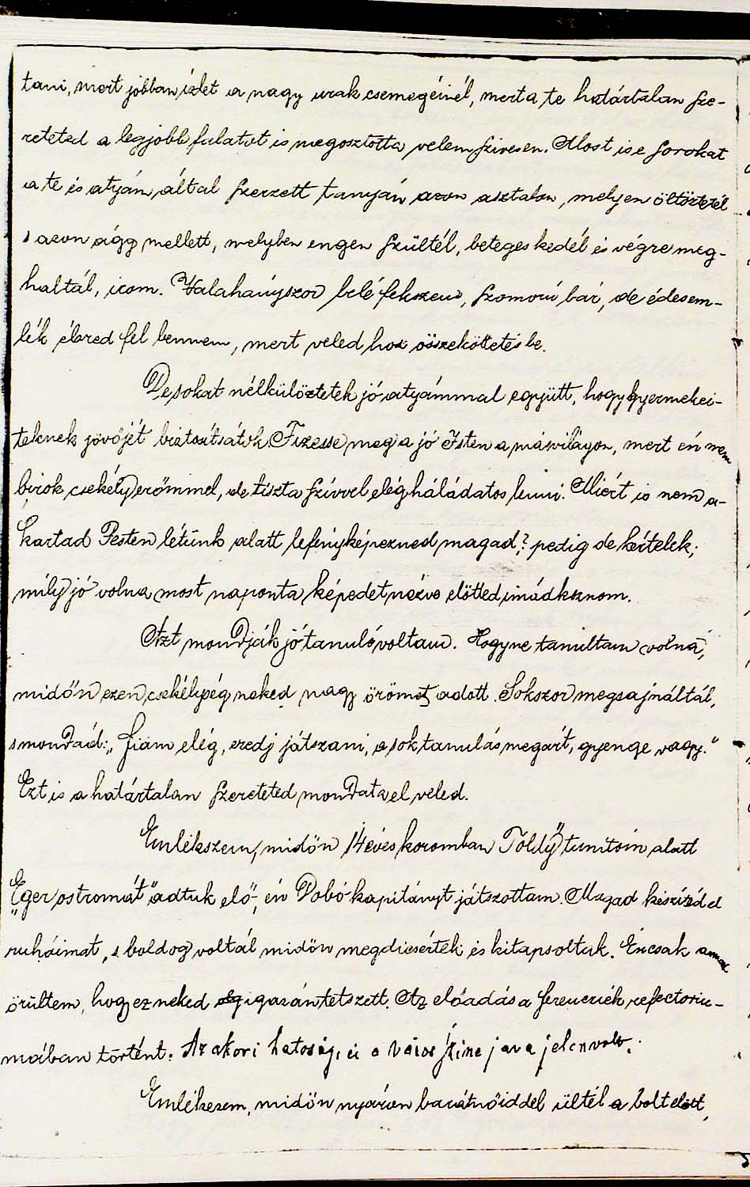 tani, mert jobban ízlet a nagy urak csemegéinél, mert a te határtalan sze-
reteted a legjobb falatot is megosztotta velem szivesen. Most is e sorokat
a te és atyám által szerzett tanyán azon asztalon, melyen öltöztetél
s azon ágy mellett, melyben engem szültél, betegeskedél és végre meg-
haltál, irom. Valahányszor belé fekszem, szomorú bár, de édes em-
lék ébred fel bennem, mert veled hoz összeköttetésbe.
De sokat nélkülöztetek jó atyámmal együtt, hogy gyermekei-
teknek jövőjét biztosítsátok. Fizesse meg a jó Isten a másvilágon, mert én nem
birok csekély erőmmel, de tiszta szívvel elég háládatos lenni. Miért is nem a-
kartad Pesten létünk alatt lefényképezned magad? pedig de kértelek;
mily jó volna most naponta képedet nézve előtted imádkoznom.
Azt mondják jó tanuló voltam. Hogyne tanultam volna,
midőn ezen csekélység neked nagy örömet adott. Sokszor megsajnáltál,
s mondád: „fiam elég, eredj játszani, a sok tanulás megárt, gyenge vagy."
Ezt is a határtalan szereteted mondatá el veled.
Emlékszem, midőn 14 éves koromban Toldy tanitóm alatt
"Eger ostromát" adtuk elő, én Dobó kapitányt játszottam. Magad készítéd
ruháimat, s boldog voltál midőn megdicsértek és kitapsoltak. Én csak annak
örültem, hogy ez neked igazán tetszett. Az előadás a ferencziek refectoriu-
mában történt. Az akori hatóság, és a város szine java jelen volt.
Emlékszem, midőn nyáron barátnőiddel ültél a bolt előtt,